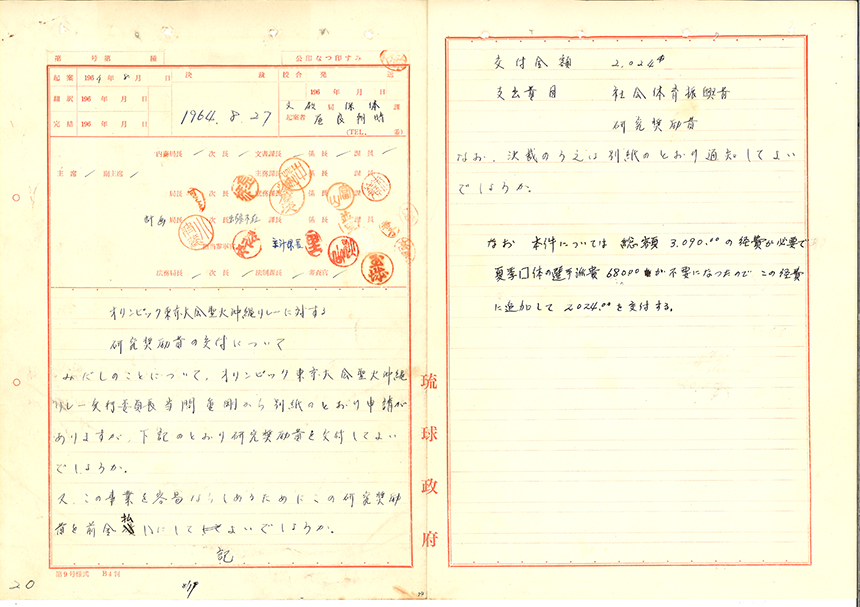 第 号第 種
公印なつ印すみ
起案 1964年8月 日
決 裁
校合 発 送
飜訳 196 年 月 日
196 年 月 日
完結 196 年 月 日
1964.8.27
文教局 保体 課
起案者
(TEL. 番)
内務局長 次長 文書課長 係長 課員
主席 副主席
主務課長 係長 課員
局長 次長 庶務課長 係長 課員
計画局長 次長 課長 係長 課員
法務局長 次長 法制課長 審査官
オリンピック東京大会聖火沖縄リレーに対する
研究奨励費の交付について
みだしのことについて、オリンピック東京大会聖火沖縄
リレー実行委員長当間重剛から別紙のとおり申請が
ありますが、下記のとおり研究奨励費を交付してよい
でしょうか。
又、この事業を容易ならしめるためにこの研究奨励
費を前金払いにしてよいでしょうか。
記
第9号様式 B4判
20
琉球政府
交付金額 2,024
支出費目 社会体育振興費
研究奨励費
なお、決裁のうえは別紙のとおり通知してよい
でしょうか。
なお 本件については 総額 3.090.00 の経費が必要で
夏季 体の選手派費 680.00 が不要になったので この経費
に追加して 2024.00 を交付する。